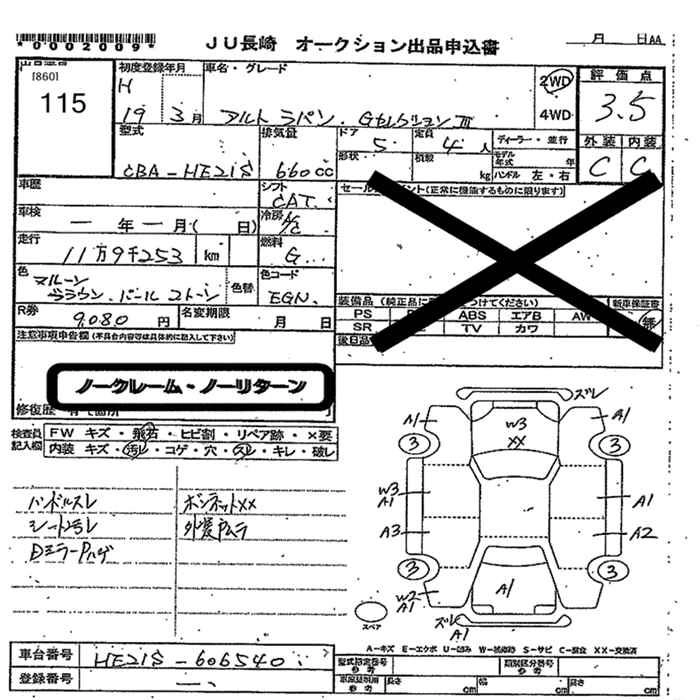 *0002009* JU長崎 オークション出品申込書 月 日AA
[860]
115
初度登録年月 車名・グレード
H 19 3月 アルト ラパン. Gセレクション Ⅲ
2WD
4WD
評価点
3.5
型式 排気量 ドア 定員
CBA-HE21S 660cc 5 4人
ディーラー・並行
形状 積載 kg
モデル年式 年
ハンドル 左・右
外装 内装
C C
車歴
シフト CAT.
セール イント(正常に機能するものに限ります)
車検 一 年 一 月( 日)
冷房 A/C
走行 11万9千253 km
燃料 G
色 マルーン
ブラウン.パール ストーン
色替
色コード EGN.
装備品(純正品に つけてください) 新車保証書
PS ABS エアB AW
SR TV カワ
無
R券 9.080 円
名変期限 月 日
後日品
注意事項申告欄(不具合内容等は具体的に記入して下さい)
ノークレーム・ノーリターン
修復歴
検査員記入欄
FW キズ・飛石・ヒビ割・リペア跡・×要
内装 キズ・汚レ・コゲ・穴・スレ・キレ・破レ
ハンドルスレ ボンネットXX
シート汚レ
DミラーPハゲ
ズレ
A1 W3 XX A1
3 3
W3 A1 A1
A3 A2
3 3
W2 A1 A1
ズレ A1
スペア
A-キズ E-エクボ U-凹み W-補修跡 S-サビ C-腐食 XX-交換済
車台番号 HE21S-606540
登録番号 一、
型式指定番号 参考 類別区分番号 参考
長さ cm 幅 cm 高さ cm